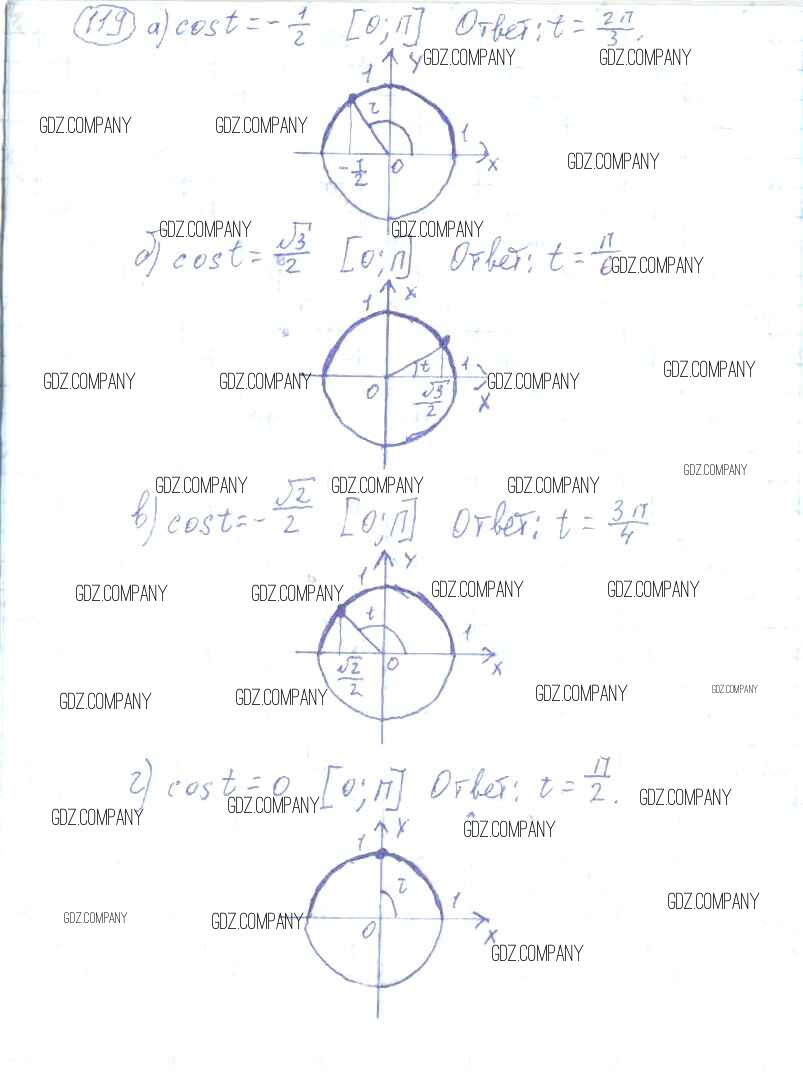 119 а) cos t = - 1/2 [0; π] Ответ: t = 2π/3.
1 y
GDZ.COMPANY GDZ.COMPANY
GDZ.COMPANY GDZ.COMPANY
1
GDZ.COMPANY
-1/2 0 x
GDZ.COMPANY GDZ.COMPANY
б) cos t = √3/2 [0; π] Ответ: t = π/6
GDZ.COMPANY
1 x
t 1
GDZ.COMPANY
GDZ.COMPANY GDZ.COMPANY GDZ.COMPANY
0 √3/2 x
GDZ.COMPANY
GDZ.COMPANY GDZ.COMPANY GDZ.COMPANY
в) cos t = - √2/2 [0; π] Ответ: t = 3π/4
1 y
GDZ.COMPANY GDZ.COMPANY GDZ.COMPANY GDZ.COMPANY
t 1
√2/2 0 x
GDZ.COMPANY GDZ.COMPANY GDZ.COMPANY GDZ.COMPANY
г) cos t = 0 [0; π] Ответ: t = π/2.
GDZ.COMPANY GDZ.COMPANY GDZ.COMPANY
1 x
GDZ.COMPANY
1
GDZ.COMPANY
GDZ.COMPANY GDZ.COMPANY
0 x
GDZ.COMPANY